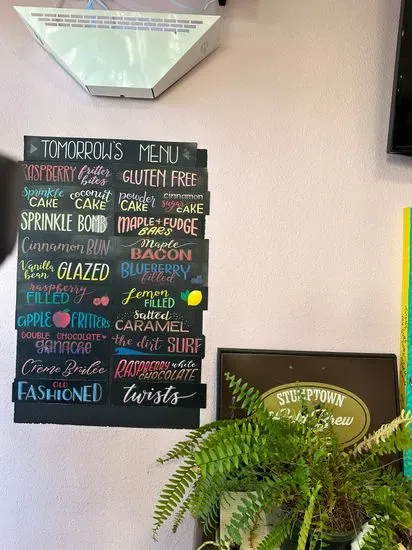 TOMORROW'S MENU
RASPBERRY fritter bites
GLUTEN FREE
Sprinkle CAKE
coconut CAKE
powder CAKE
cinnamon sugar CAKE
SPRINKLE BOMB
MAPLE + FUDGE BARS
Cinnamon BUN
Maple BACON
Vanilla bean GLAZED
BLUEBERRY filled
raspberry FILLED
Lemon FILLED
apple FRITTERS
Salted CARAMEL
DOUBLE CHOCOLATE ganache
the dirt SURF
Crème Brûlée
RASPBERRY white CHOCOLATE
OLD FASHIONED
twists
STUMPTOWN
Cold Brew